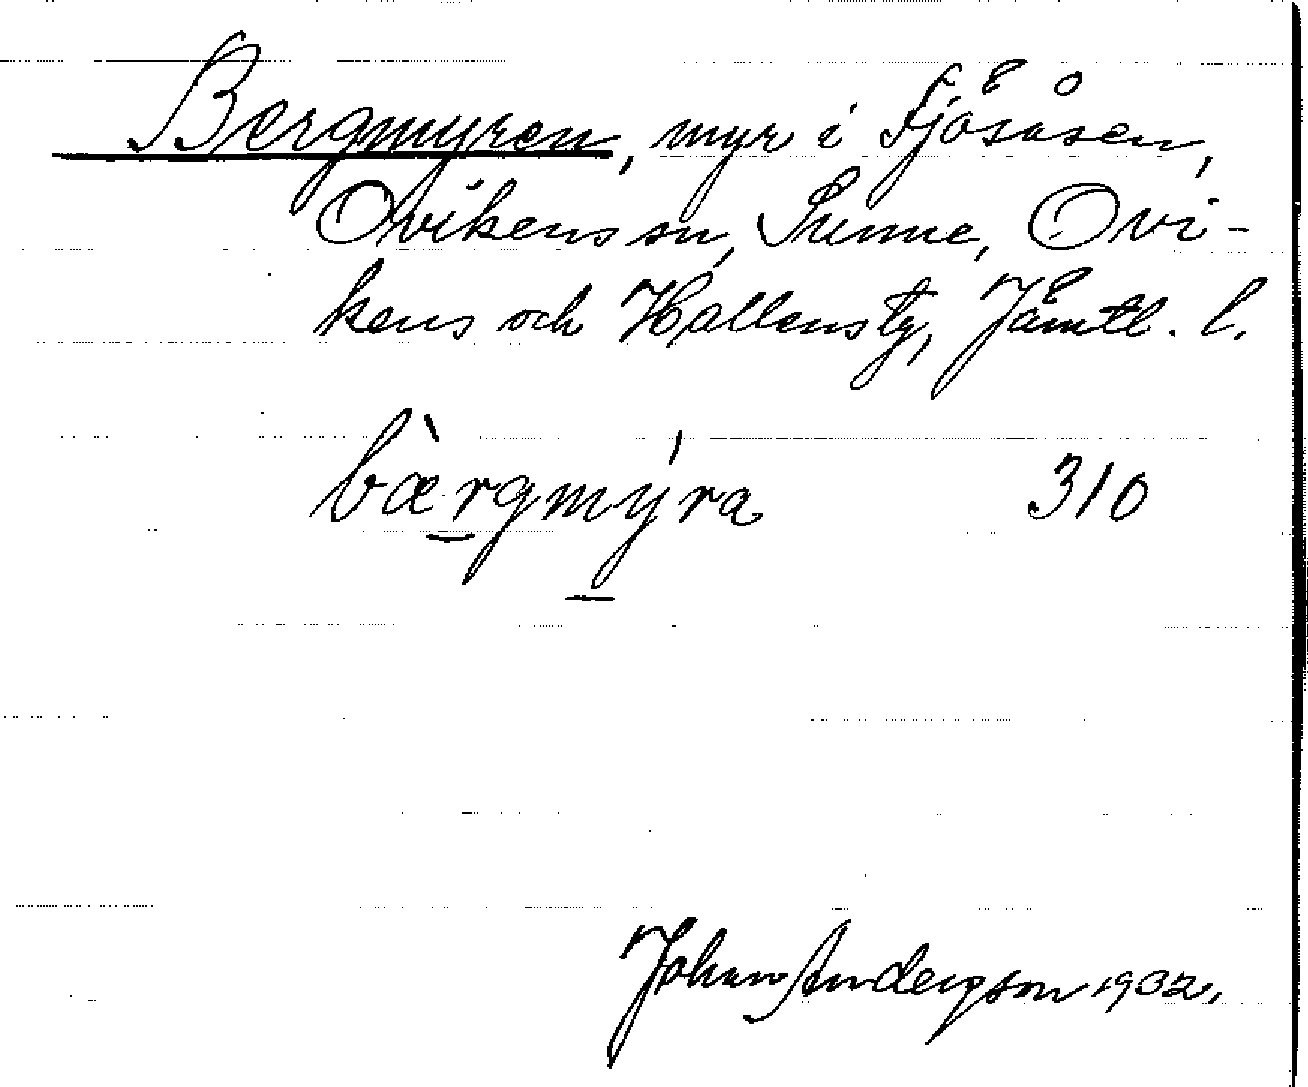 Bergmyren, myr i Fjösåsen,
Ovikens sn, Sunne, Ovi-
kens och Hallens tg, Jämtl. l.
bærgmýra 310
Johan Anderson 1932.